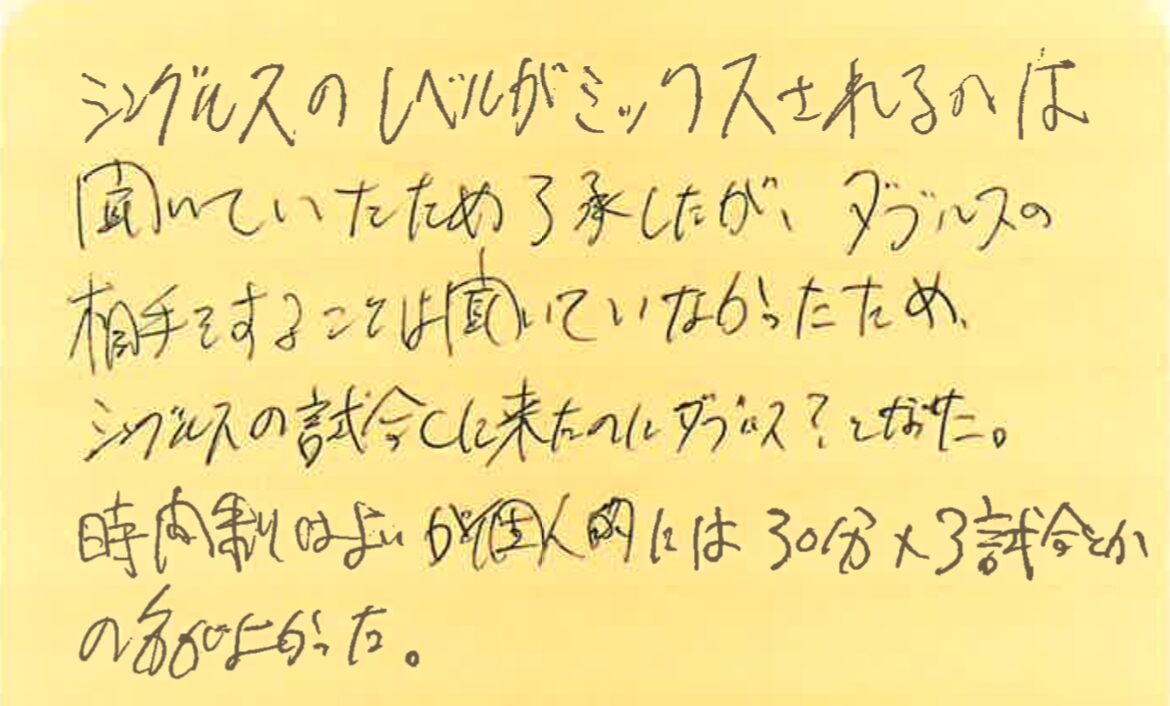 シングルスのレベルがミックスされるのは
聞いていたため了承したが、ダブルスの
相手をすることは聞いていなかったため、
シングルスの試合しに来たのにダブルス?となった。
時間制はよいが個人的には30分×3試合とか
の方がよかった。